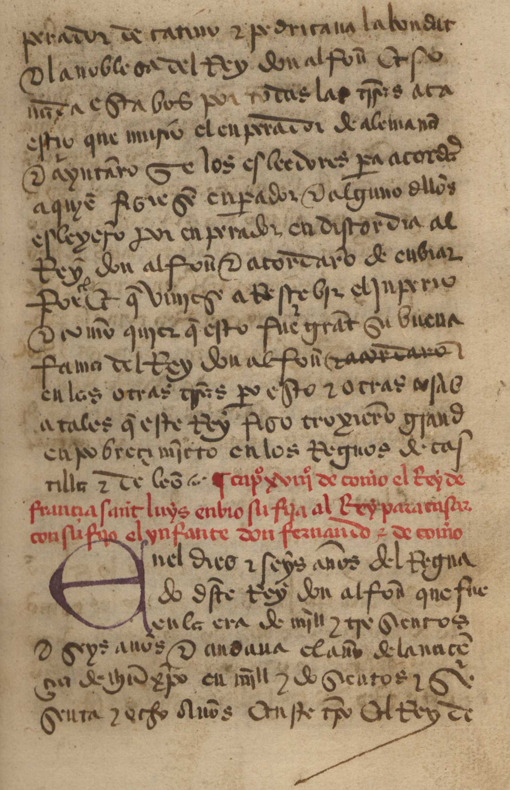 perador de catiuo e pedricaua la bondat
E la noblesa del Rey don alfon Et seo
nada esta bos por todas las trras aca
estio que murio el enperador de alemana
E ayuntaro se los esleedores pa acordar
a quie fisiese enperador E alguno dllos
esleyero por enperador en discordia al
Rey don alfon E acordaro de enbiar
por el q viniese a Resçebir el inperio
E como quier q esto fue grant su buena
fama del Rey don alfon E acordaro
en las otras trras po esto e otras cosas
atales q este Rey fiso troxiero grand
enpobreçimieto en los Regnos de cas
tilla e de leo
capo xviij de como el Rey de
françia sant luys enbio su fija al Rey para casar
con su fijo el ynfante don fernando e de como
Enel dies e seys anos del Regna
do dste Rey don alfon que fue
en la era de mill e tresientos
E seys anos E andaua el ano de la naçe
çia de ihu xpo en mill e dosientos e se
senta e ocho Anos En este tpo El Rey de